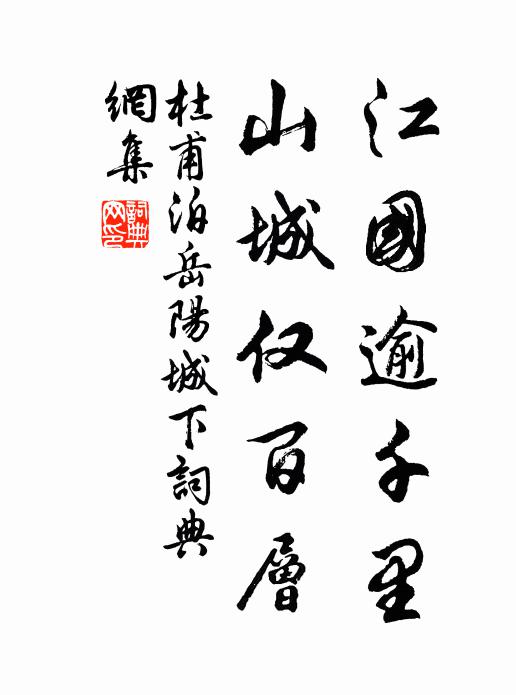 江國逾千里
山城仅百層
杜甫泊岳陽城下詞典
網集
詞典
网印